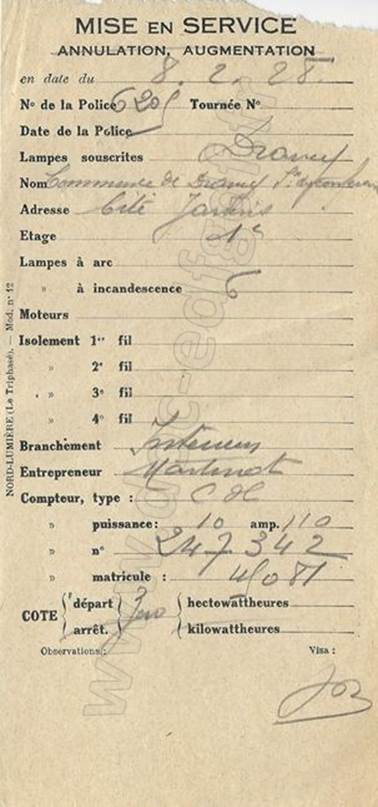 MISE EN SERVICE
ANNULATION, AUGMENTATION
en date du 8.2.28
N° de la Police 6205 Tournée N°
Date de la Police
Lampes souscrites Drancy
Nom Commune de Drancy
Adresse Cité Jardins
Etage 1e
Lampes à arc
» à incandescence 6
Moteurs
Isolement 1er fil
» 2e fil
» 3e fil
» 4e fil
Branchement Intérieur
Entrepreneur Martinot
Compteur, type : C d C
» puissance: 10 amp. 110
» n° 247342
» matricule :
COTE départ Zero hectowattheures
arrêt. kilowattheures
Observations: Visa :
NORD-LUMIÈRE (Le Triphasé). — Mod. n° 12